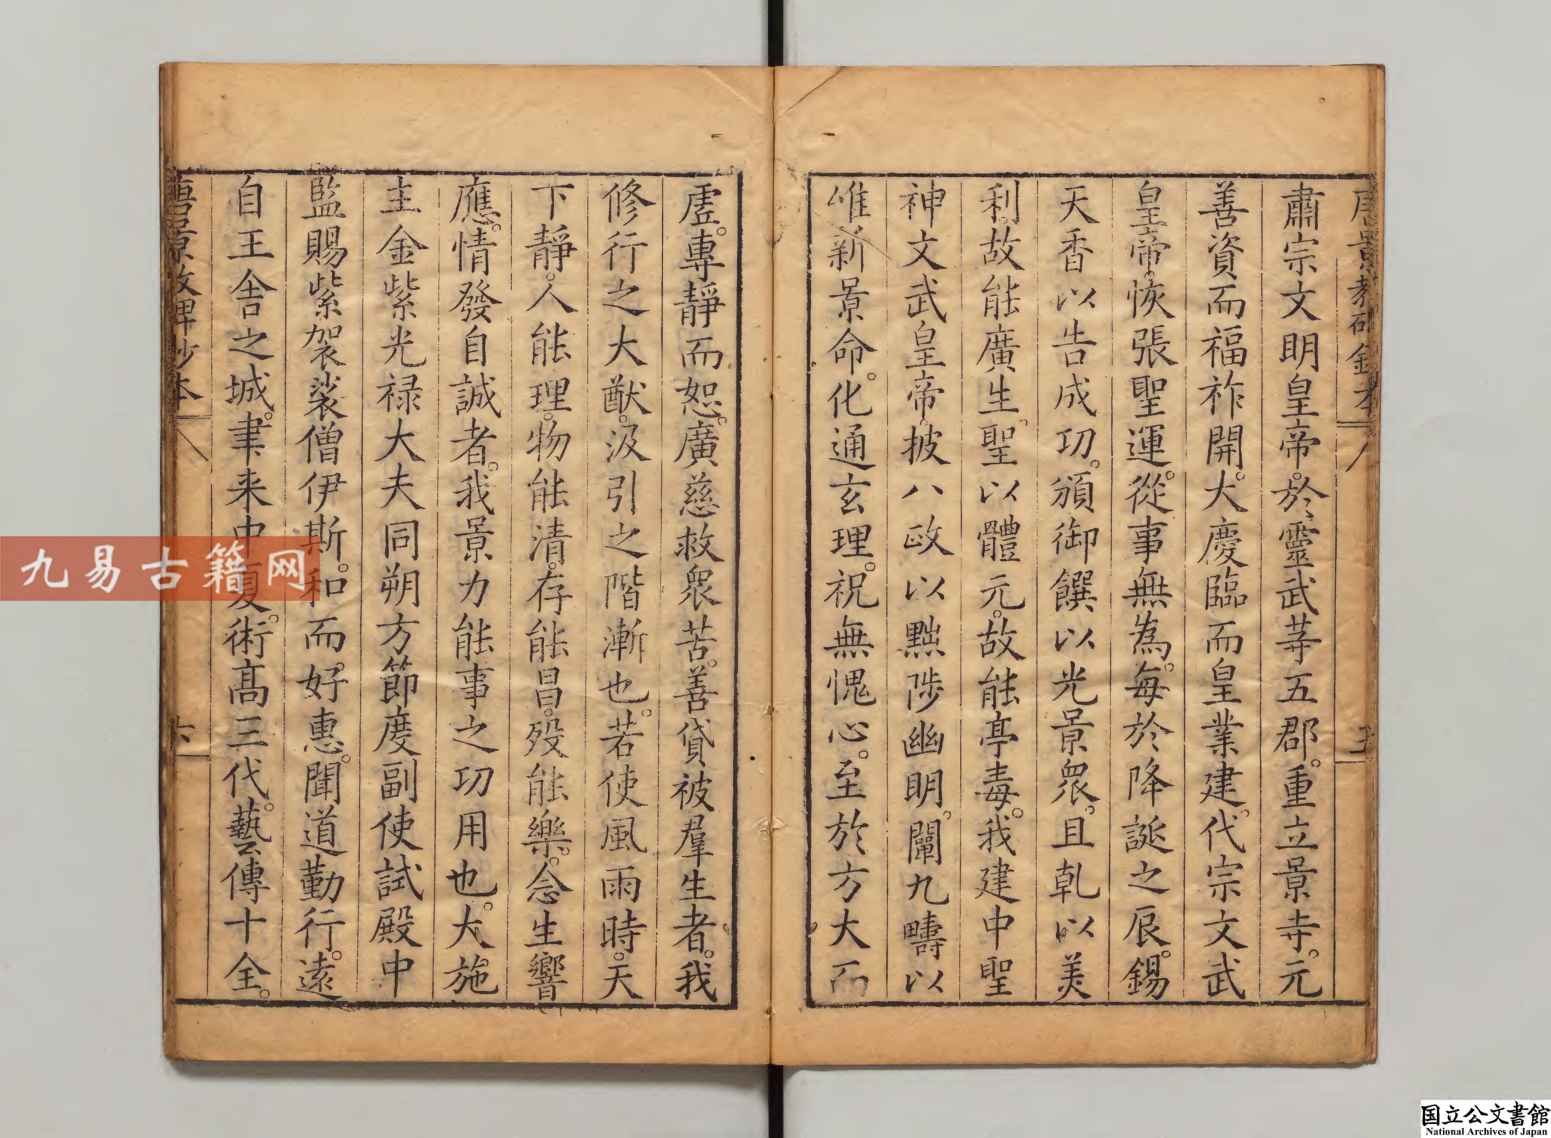 肅宗文明皇帝。於靈武等五郡。重立景寺。元
善資而福祚開。大慶臨而皇業建。代宗文武
皇帝。恢張聖運。從事無為。每於降誕之辰。錫
天香以告成功。頒御饌以光景衆。且乹以美
利。故能廣生。聖以體元。故能亭毒。我建中聖
神文武皇帝。披八政以黜陟幽明。闡九疇以
惟新景命。化通玄理。祝無愧心。至於方大而
虛。專靜而恕。廣慈救衆苦。善貸被羣生者。我
修行之大猷。汲引之階漸也。若使風雨時。天
下靜。人能理。物能清。存能昌。歿能樂。念生響
應。情發自誠者。我景力能事之功用也。大施
主金紫光禄大夫同朔方節度副使試殿中
監賜紫袈裟僧伊斯。和而好惠。聞道勤行。遠
自王舍之城。聿来中夏。術高三代。藝傳十全。
唐景教碑
六
九易古籍网
国立公文書館
National Archives of Japan